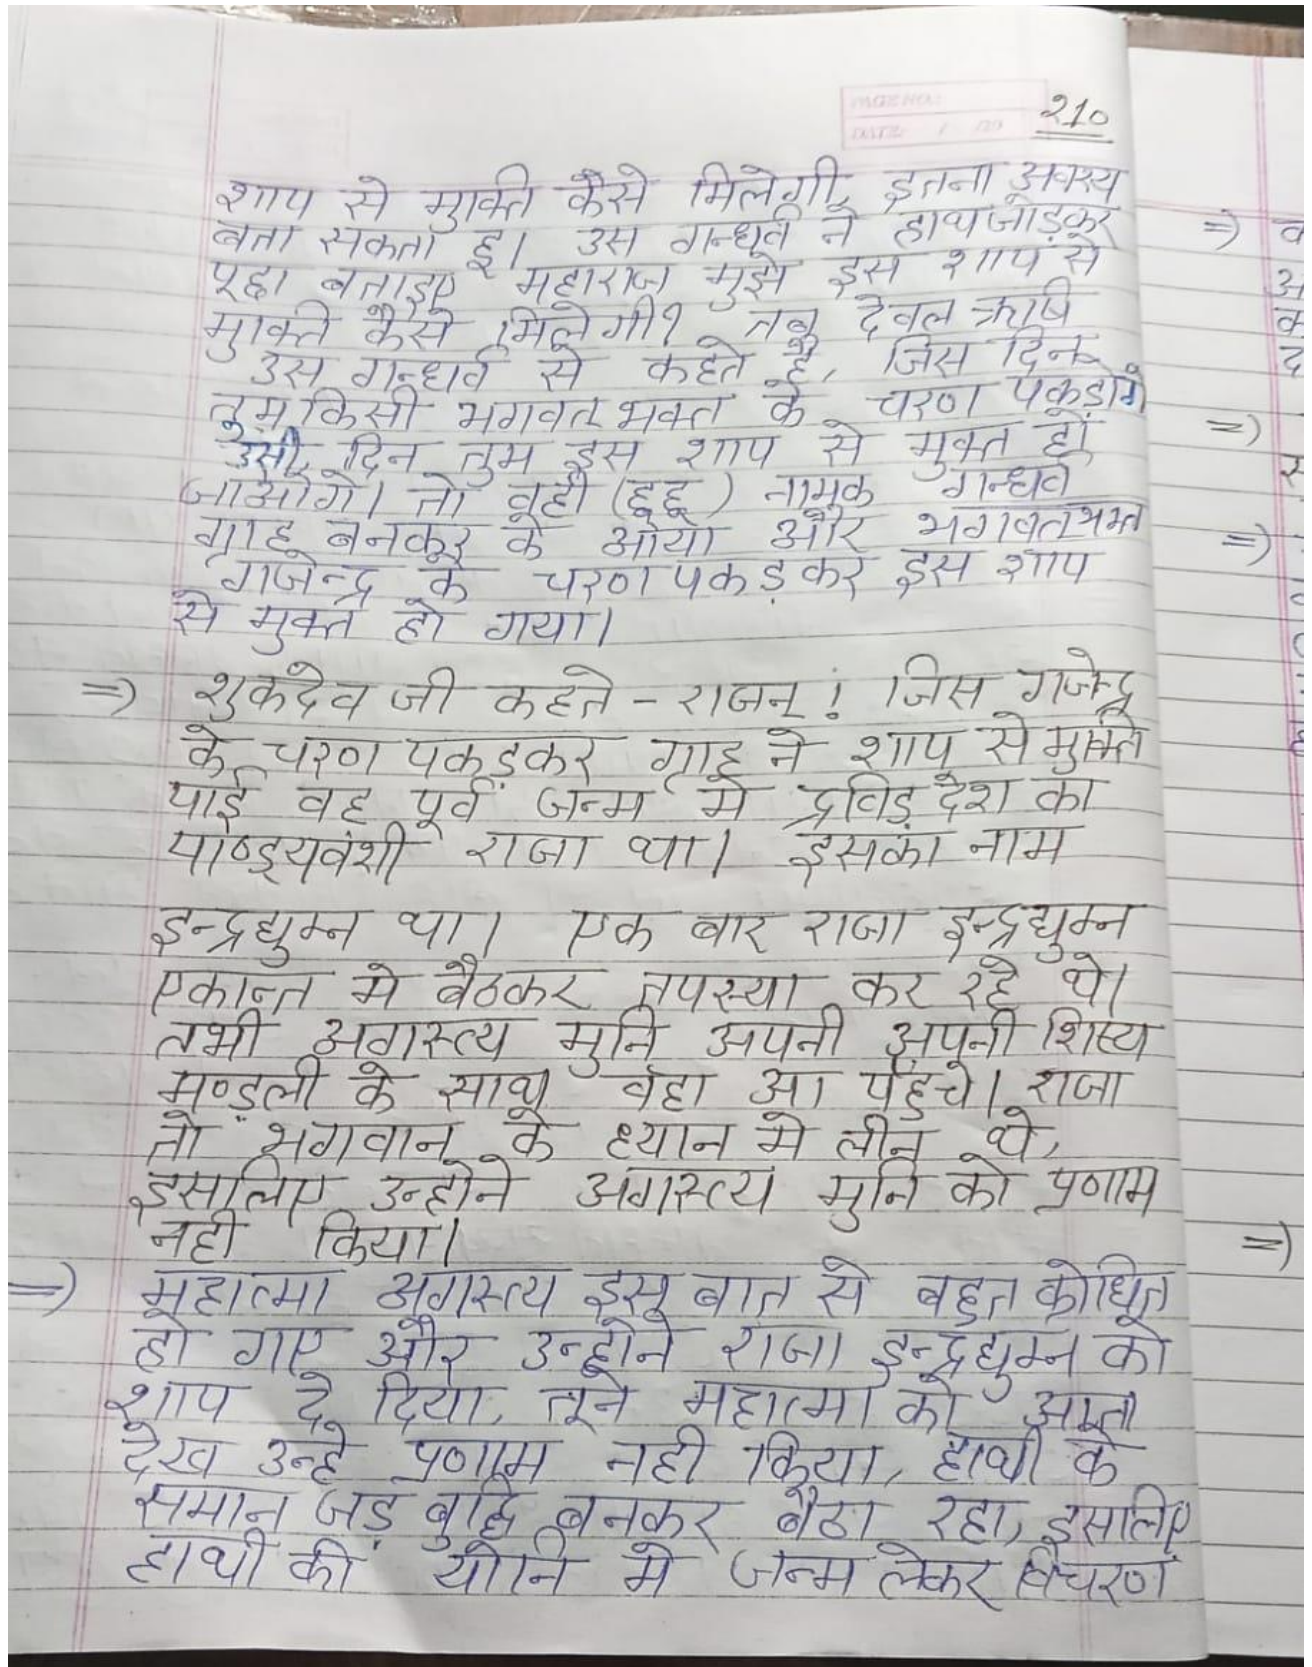 PAGE NO.:
DATE: / /20
210
शाप से मुक्ति कैसे मिलेगी, इतना अवश्य
बता सकता हू। उस गन्धर्व ने हाथ जोड़कर
पूछा बताइए महाराज मुझे इस शाप से
मुक्ति कैसे मिलेगी? तब देवल ऋषि
उस गन्धर्व से कहते है, जिस दिन
तुम किसी भगवत भक्त के चरण पकड़ोगे
उसी दिन तुम इस शाप से मुक्त हो
जाओगे। तो वही (हूहू) नामक गन्धर्व
ग्राह बनकर के आया और भगवतभक्त
गजेन्द्र के चरण पकड़कर इस शाप
से मुक्त हो गया।
=> शुकदेव जी कहते - राजन्! जिस गजेन्द्र
के चरण पकड़कर ग्राह ने शाप से मुक्ति
पाई वह पूर्व जन्म मे द्रविड़ देश का
पाण्ड्यवंशी राजा था। इसका नाम
इन्द्रद्युम्न था। एक बार राजा इन्द्रद्युम्न
एकान्त मे बैठकर तपस्या कर रहे थे।
तभी अगस्त्य मुनि अपनी अपनी शिष्य
मण्ड़ली के साथ वहा आ पहुँचे। राजा
तो भगवान के ध्यान मे लीन थे,
इसलिए उन्होने अगस्त्य मुनि को प्रणाम
नही किया।
=> महात्मा अगस्त्य इस बात से बहुत क्रोधित
हो गए और उन्होने राजा इन्द्रद्युम्न को
शाप दे दिया, तूने महात्मा को आता
देख उन्हे प्रणाम नही किया, हाथी के
समान जड़ बुद्धि बनकर बैठा रहा, इसलिए
हाथी की योनि मे जन्म लेकर विचरण